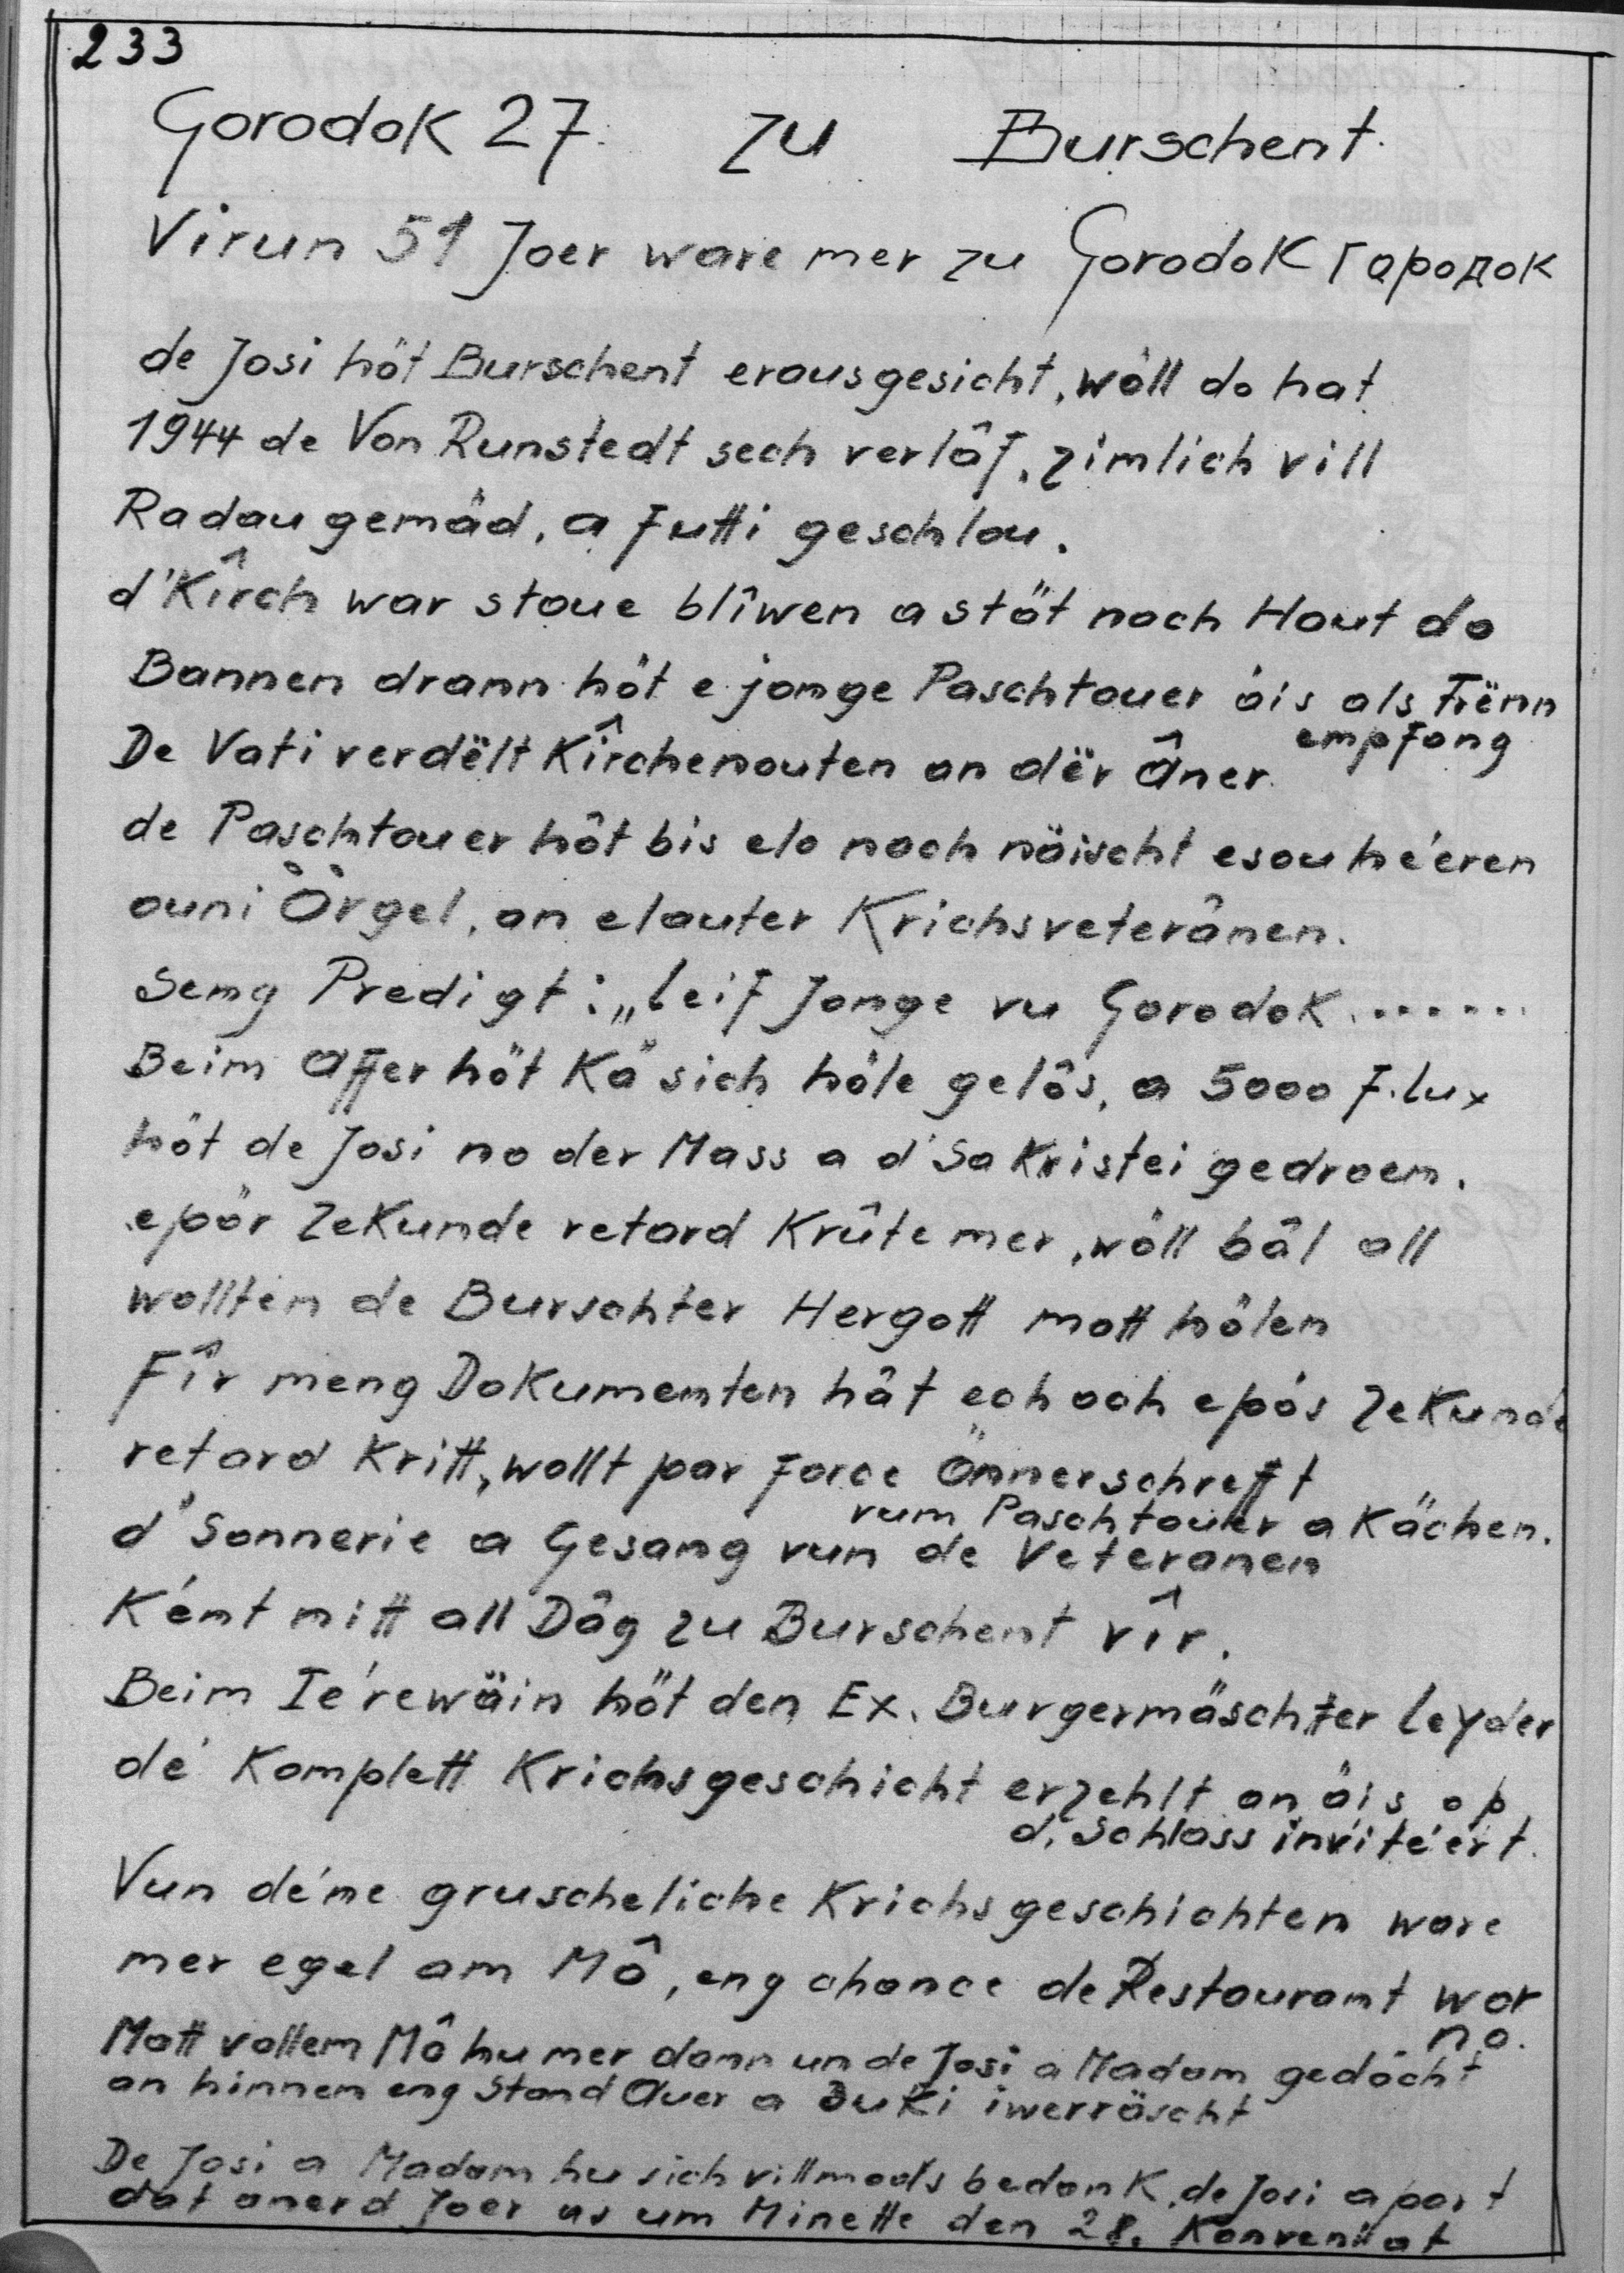 233
Gorodok 27. zu Burschent.
Virun 51 Joer ware mer zu Gorodok городок
de Josi höt Burschent erausgesicht, wöll do hat
1944 de Von Runstedt sech verlâf, zimlich vill
Radau gemâd, a futti geschlou.
d'Kîrch war stoue blîwen a stöt noch Hout do
Bannen drann hôt e jonge Paschtouer ois als Frënn
empfong
De Vati verdëlt Kîrchenouten an dër âner.
de Paschtouer hôt bis elo noch nöischt esou héeren
ouni Örgel, an elauter Krichsveterânen.
Seng Predigt: „leif Jonge vu Gorodok.......
Beim Affer höt Kä sich hôle gelôs, a 5000 f. lux
höt de Josi no der Mass a d'Sakristei gedroen.
epör Zekunde retard Krûte mer, wöll bâl all
wollten de Burschter Hergott matt hôlen
Fîr meng Dokumenten hât ech och epôs Zekunde
retard Kritt, wollt par force Önnerschreft
vum Paschtouer a Kächen.
d'Sonnerie a Gesang vun de Veteranen
Ként nitt all Dâg zu Burschent vîr.
Beim Iérewäin höt den Ex. Burgermäschter Leyder
dé Komplett Krichsgeschicht erzehlt an ôis op
d, Schlass invitéert.
Vun déne gruscheliche Krichsgeschichten ware
mer egel am Mô, eng chance de Restaurant wor
no.
Matt vollem Mô hu mer dann un de Josi a Madam gedöcht
an hinnen eng Stand Auer a Buki iwerräscht
De Josi a Madam hu sich villmools bedank, de Josi apart
dat anerd Joer as um Minette den 28. Konventtat